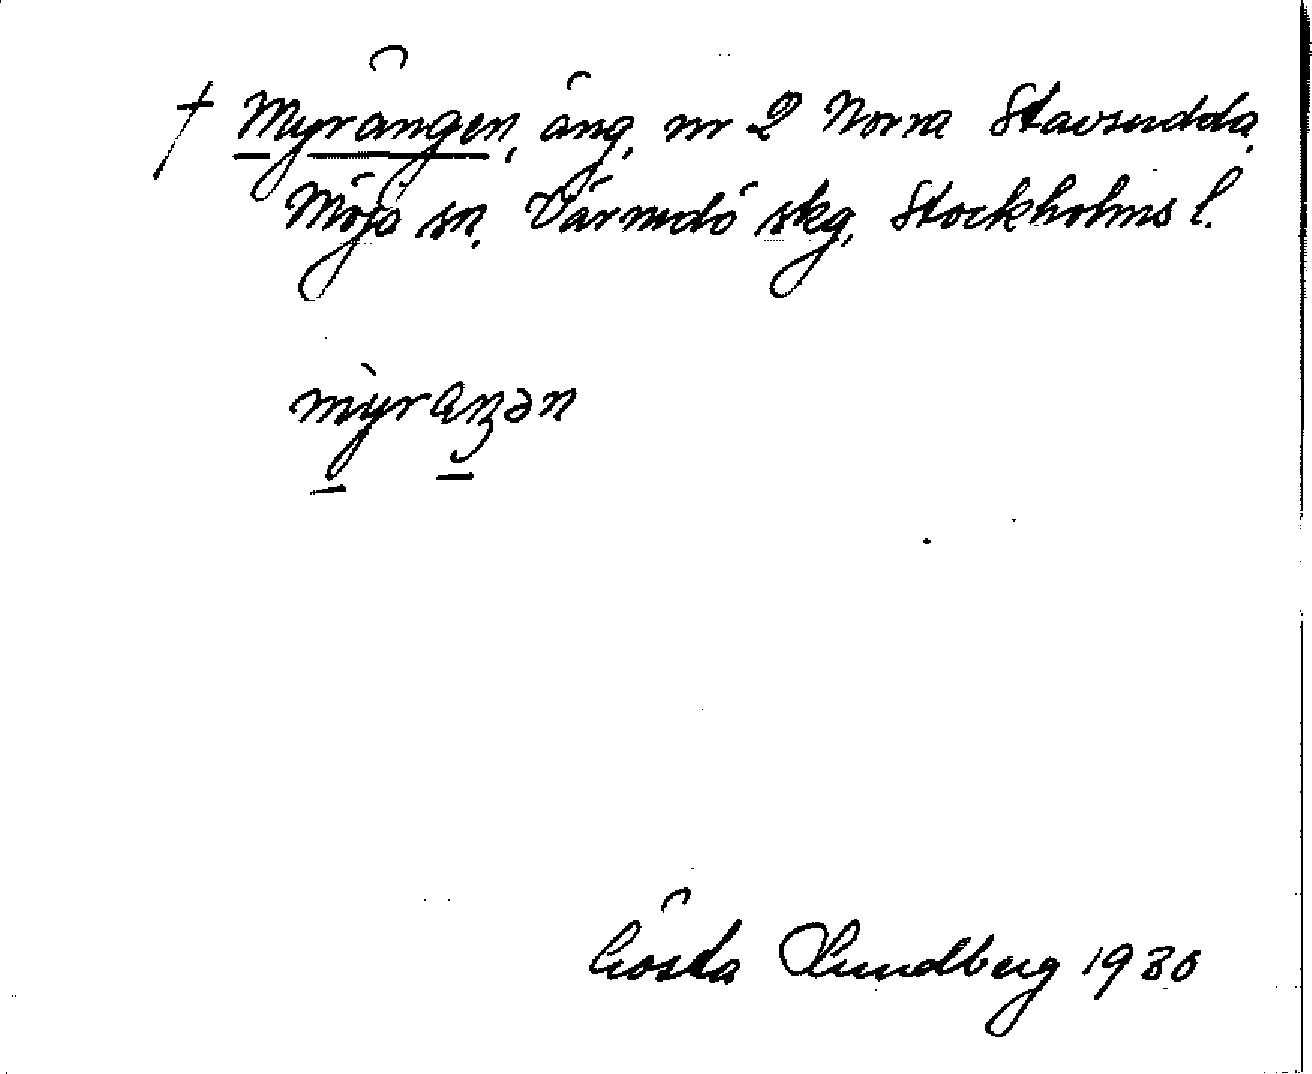 † Myrängen, äng, nr 2 Norra Stavsudda,
Möja sn, Värmdö skg, Stockholms l.
mỳ̱raŋən
Gösta Lundberg 1930